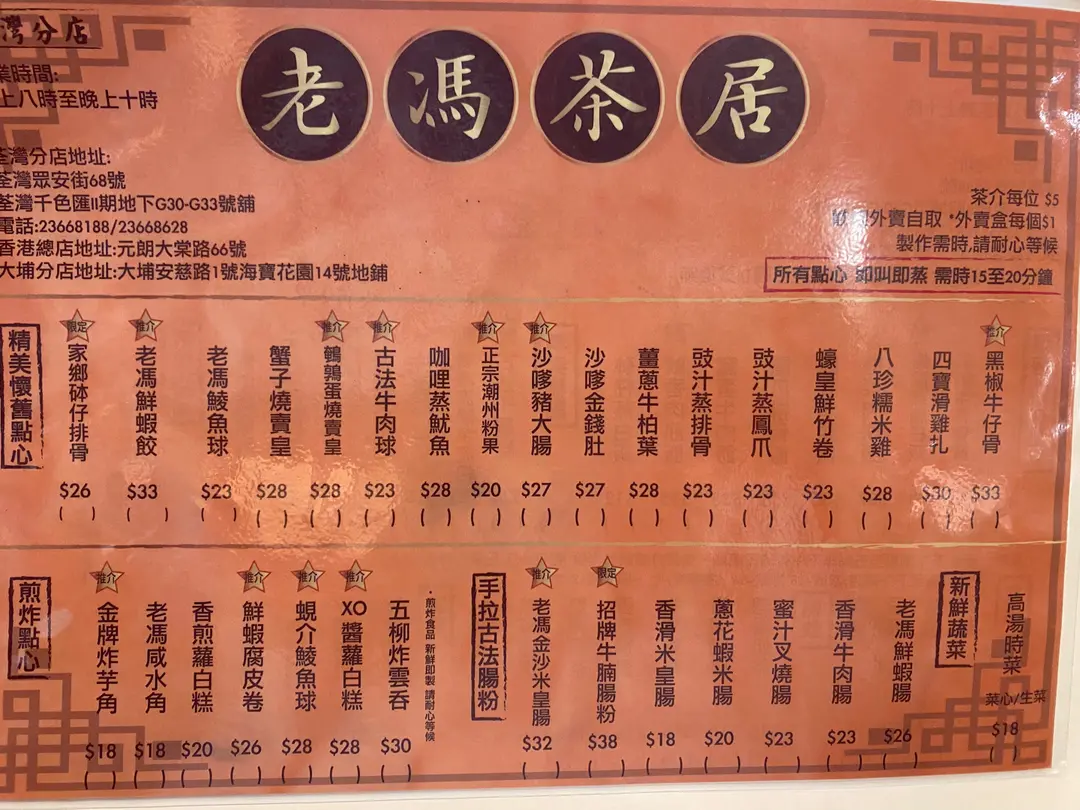 灣分店
業時間:
上八時至晚上十時
老馮茶居
荃灣分店地址:
荃灣眾安街68號
荃灣千色匯II期地下G30-G33號舖
電話:23668188/23668628
香港總店地址:元朗大棠路66號
大埔分店地址:大埔安慈路1號海寶花園14號地舖
茶介每位 $5
外賣自取 *外賣盒每個$1
製作需時,請耐心等候
所有點心 即叫即蒸 需時15至20分鐘
精美懷舊點心
限定 家鄉砵仔排骨 $26 ( )
推介 老馮鮮蝦餃 $33 ( )
老馮鯪魚球 $23 ( )
蟹子燒賣皇 $28 ( )
推介 鵪鶉蛋燒賣皇 $28 ( )
推介 古法牛肉球 $23 ( )
咖哩蒸魷魚 $28 ( )
推介 正宗潮州粉果 $20 ( )
推介 沙嗲豬大腸 $27 ( )
沙嗲金錢肚 $27 ( )
薑蔥牛柏葉 $28 ( )
豉汁蒸排骨 $23 ( )
豉汁蒸鳳爪 $23 ( )
蠔皇鮮竹卷 $23 ( )
八珍糯米雞 $28 ( )
四寶滑雞扎 $30 ( )
推介 黑椒牛仔骨 $33 ( )
煎炸點心
推介 金牌炸芋角 $18 ( )
老馮咸水角 $18 ( )
香煎蘿白糕 $20 ( )
推介 鮮蝦腐皮卷 $26 ( )
推介 蜆介鯪魚球 $28 ( )
推介 XO醬蘿白糕 $28 ( )
五柳炸雲吞 $30 ( )
·煎炸食品 新鮮即製 請耐心等候
手拉古法腸粉
推介 老馮金沙米皇腸 $32 ( )
限定 招牌牛腩腸粉 $38 ( )
香滑米皇腸 $18 ( )
蔥花蝦米腸 $20 ( )
蜜汁叉燒腸 $23 ( )
香滑牛肉腸 $23 ( )
老馮鮮蝦腸 $26 ( )
新鮮蔬菜
高湯時菜 菜心/生菜 $18 ( )